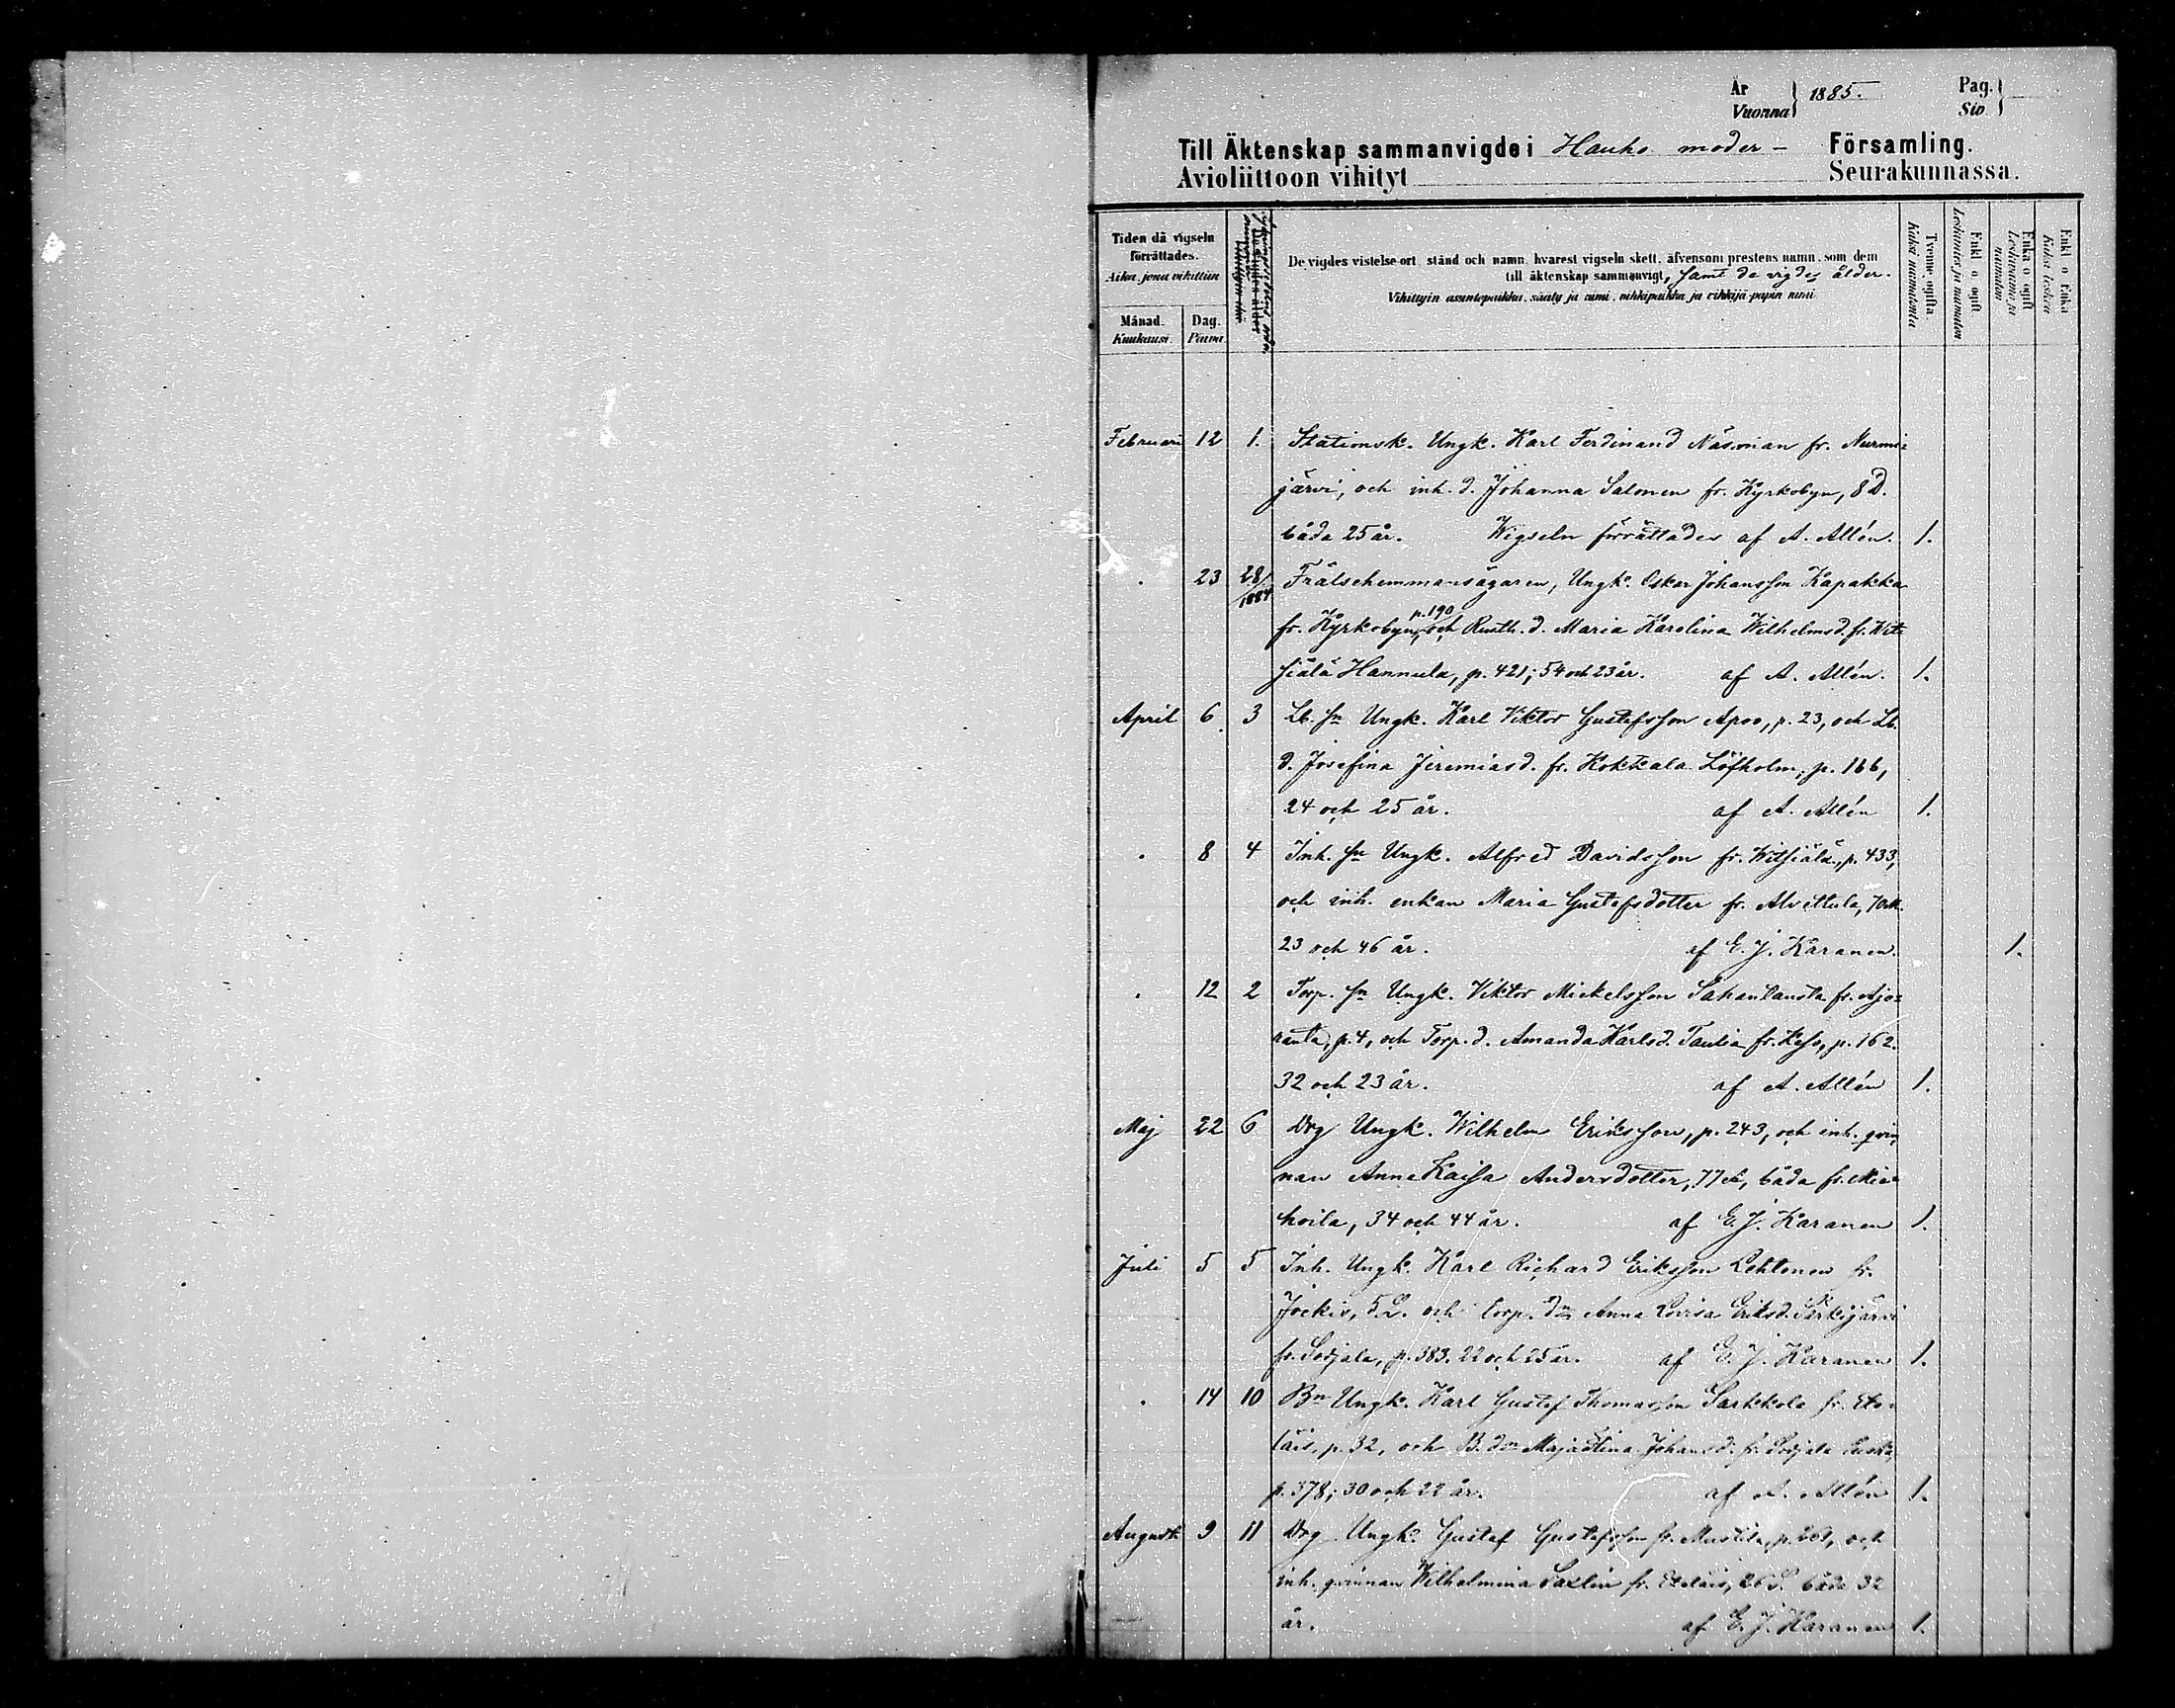 År
Vuonna
1885.
Pag.
Siv
Till Äktenskap sammanvigde i Hauho moder- Församling.
Avioliittoon vihityt Seurakunnassa.
Tiden då vigseln
förrättades.
Aika, jona vihittiin
Månad.
Kuukausi.
Dag.
Päivä
De vigdes vistelse-ort, stånd och namn, hvarest vigseln skett, äfvensom prestens namn, som dem
till äktenskap sammanvigt, samt de vigdes ålder.
Vihittyin asuntopaikka, sääty ja nimi, vihkipaikka ja vihkijä-papin nimi
Tvenne ogifta.
Kaksi naimatonta
Enkl. o. ogift
Leskimies ja naimaton
Enka o. ogift
Leskivaimo ja
naimaton
Enkl. o. Enka
Kaksi leskeä
Februari 12 1. Stationsk. Ungk. Karl Ferdinand Näsman fr. Nurmi-
järvi, och inh. d. Johanna Salonen fr. Kyrkobyn, 8 D.
båda 25 år. Wigseln förrättades af A. Allén. 1.
. 23 28/1884 Frälsehemmansägaren, Ungk. Oskar Johansson Kapakka
fr. Kyrkobyn, p. 190 och Rusth. d. Maria Karolina Wilhelmsd. fr. Wit-
siälä Hannula, p. 421; 54 och 23 år. af A. Allén. 1.
April 6 3 Lb. sn Ungk. Karl Viktor Gustafsson Apoo, p. 23, och Lb.
d. Josefina Jeremiasd. fr. Kokkala Löfholm, p. 166,
24 och 25 år. af A. Allén 1.
. 8 4 Inh. sn Ungk. Alfred Davidsson fr. Witsiälä, p. 433,
och inh. enkan Maria Gustafsdotter fr. Alvettula,
23 och 46 år. af E. J. Karanen. 1.
. 12 2 Torp. sn Ungk. Viktor Mickelsson Sahantausta fr. Ajo-
ranta, p. 4, och Torp. d. Amanda Karlsd. Taulia fr. p. 162.
32 och 23 år. af A. Allén 1.
Maj 22 6 Drg Ungk. Wilhelm Eriksson, p. 243, och inh. qvin
nan Anna Kaisa Andersdotter, båda fr. Mie-
hoila, 34 och 44 år. af E. J. Karanen 1.
Juli 5 5 Inh. Ungk. Karl Richard Eriksson Lehtonen fr.
Jockis, 5 L. och torp. dn Anna Lovisa Eriksd. Särkijärvi
fr. Sotjala, p. 383. 22 och 25 år. af E. J. Karanen 1.
. 14 10 Bn Ungk. Karl Gustaf Thomasson Sarkkola fr. Ete-
läis, p. 32, och B. dn Maja Stina Johansd. fr. Sotjala
p. 378; 30 och 22 år. af A. Allén 1.
Augusti 9 11 Drg Ungk. Gustaf Gustafsson fr. och
inh. qvinnan Wilhelmina fr. Eteläis, 26 S. båda 32
år. af E. J. Karanen 1.